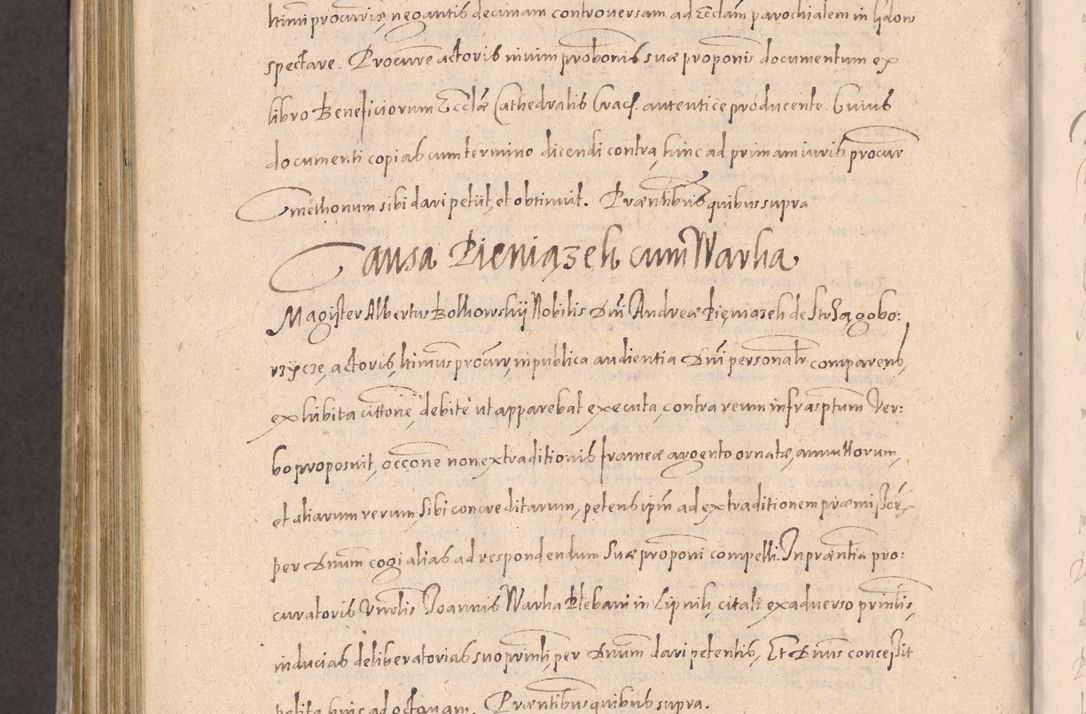 ltimi procuris, negantis decimam controversam ad Eccłam parochialem in Igdow
spectare. Procure actoris in vim probōnis suæ proponis documentum ex
libro Beneficiorum Ecclæ Cathedralis Crac̃. autentice producente. Cuius
documenti copias cum termino dicendi contra, hinc ad primam iuris procur
Cmethonum sibi dari petiit, et obtinuit. Præntibus quibus supra
Causa Pieniązek cum Warka
Magister Albertus Bolkowskij Nobilis Dni Andreæ Pięniazek de
rzÿcze, actoris, ltimus procur, in publica audientia Dni personalr comparens,
exhibita cittone debite ut apparebat executa, contra reum infrasptum Ver:
bo proposuit, occōne non extraditionis frameæ argento ornatæ, annullorum,
et aliarum rerum, sibi concreditarum, petens ipm ad extraditionem præmissor,
per Dnum cogi alias ad respondendum suæ proponi compelli. In præntia pro:
curatoris Vnrlis Joannis Warka Plebani in Lipnik, citati ex adverso prinlis,
inducias deliberatorias suo prinli, per Dnum dari petentis, Et Dnus concessit
petita huic ad octavam. Præntibus quibus supra.